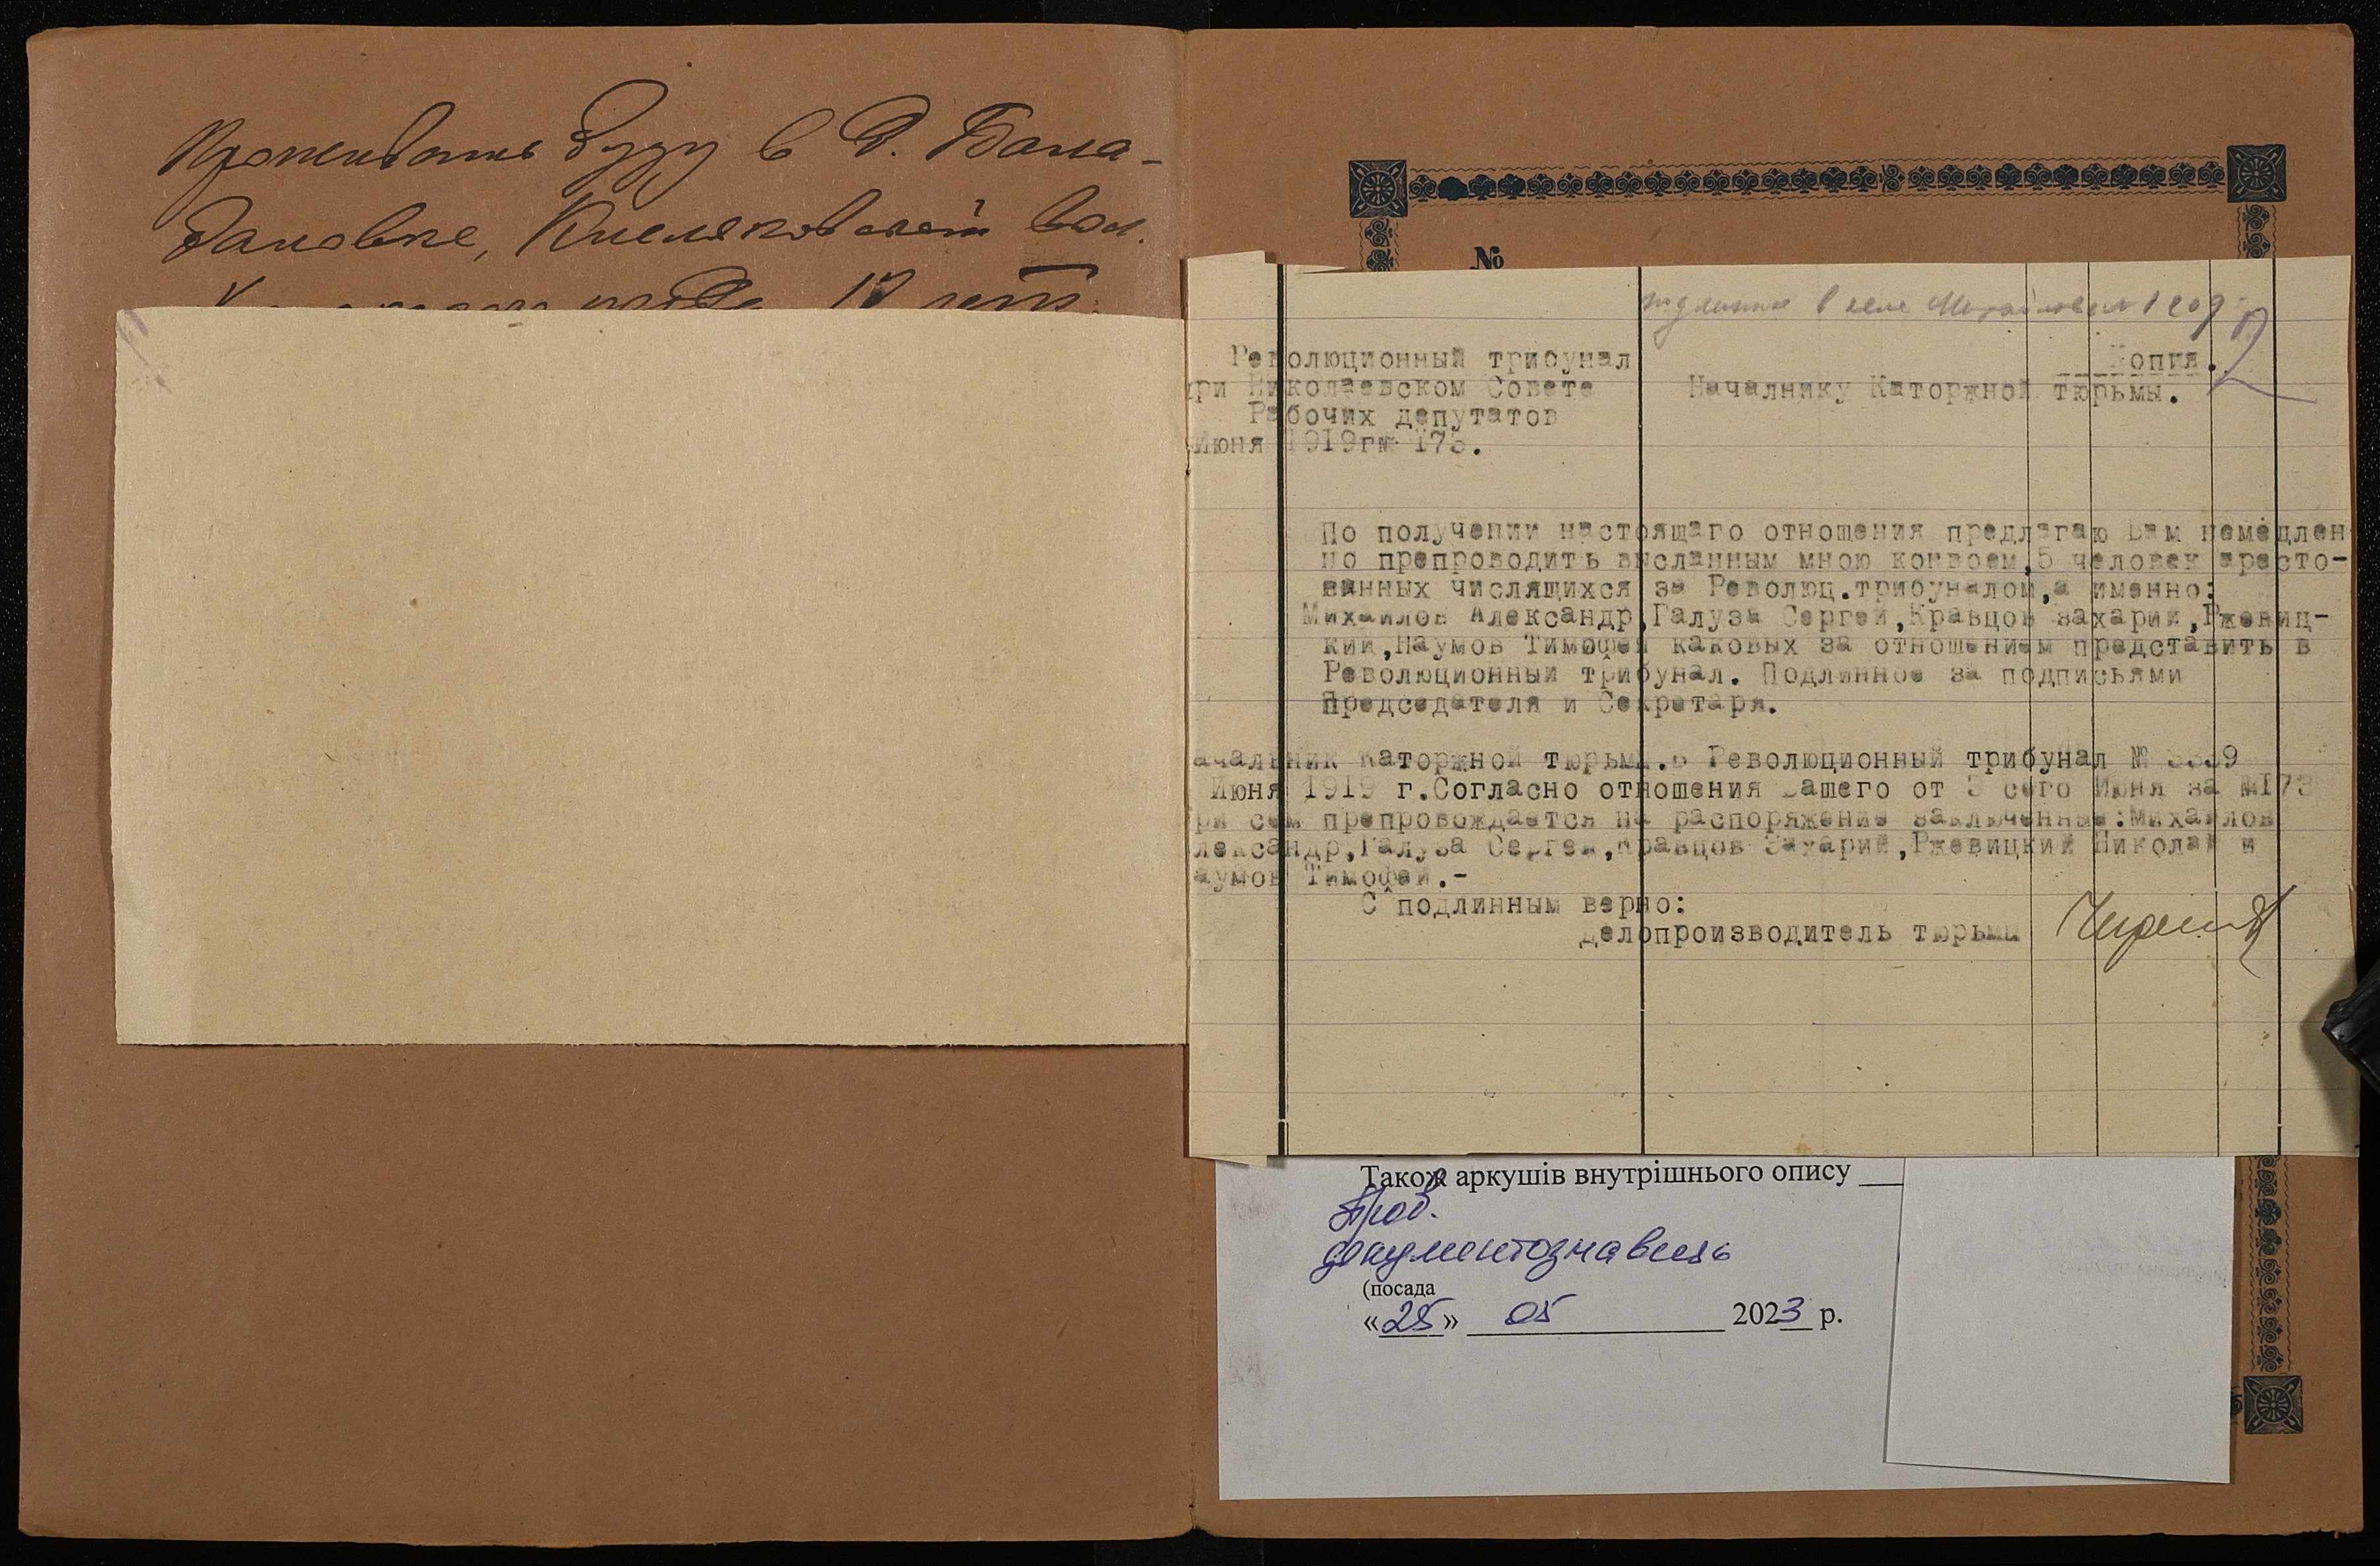 Проживать буду в д. Бала-
бановке, Кисляковской вол.
№
подлинник в деле Михайлова 1209
Революционный трибунал
Копия.
при Николаевском Совете
Началнику Каторжной тюрьмы.
Рабочих депутатов
Июня 1919г№ 173.
По получении настоящаго отношения предлагаю Вам немедлен
но препроводить высланным мною конвоем,5 человек аресто-
ванных числящихся за Революц.трибуналом,а именно:
Михаилов Александр,Галуза Сергей,Кравцов Захарий,Ржевиц-
кий,Наумов Тимофей каковых за отношением представить в
Революционный трибунал. Подлинное за подписьями
Председателя и Секретаря.
ачальник Каторжной тюрьмы.В Революционный трибунал № 3339
Июня 1919 г.Согласно отношения Вашего от 3 сего Июня за №173
ри сем препровождается на распоряжение заключенные:Михайлов
лександр,Галуза Сергей,Кравцов Захарий,Ржевицкий Николай и
аумов Тимофей.-
С подлинным верно:
Делопроизводитель тюрьмы
Також аркушів внутрішнього опису
Пров.
документознавець
(посада
«25» 05 2023 р.